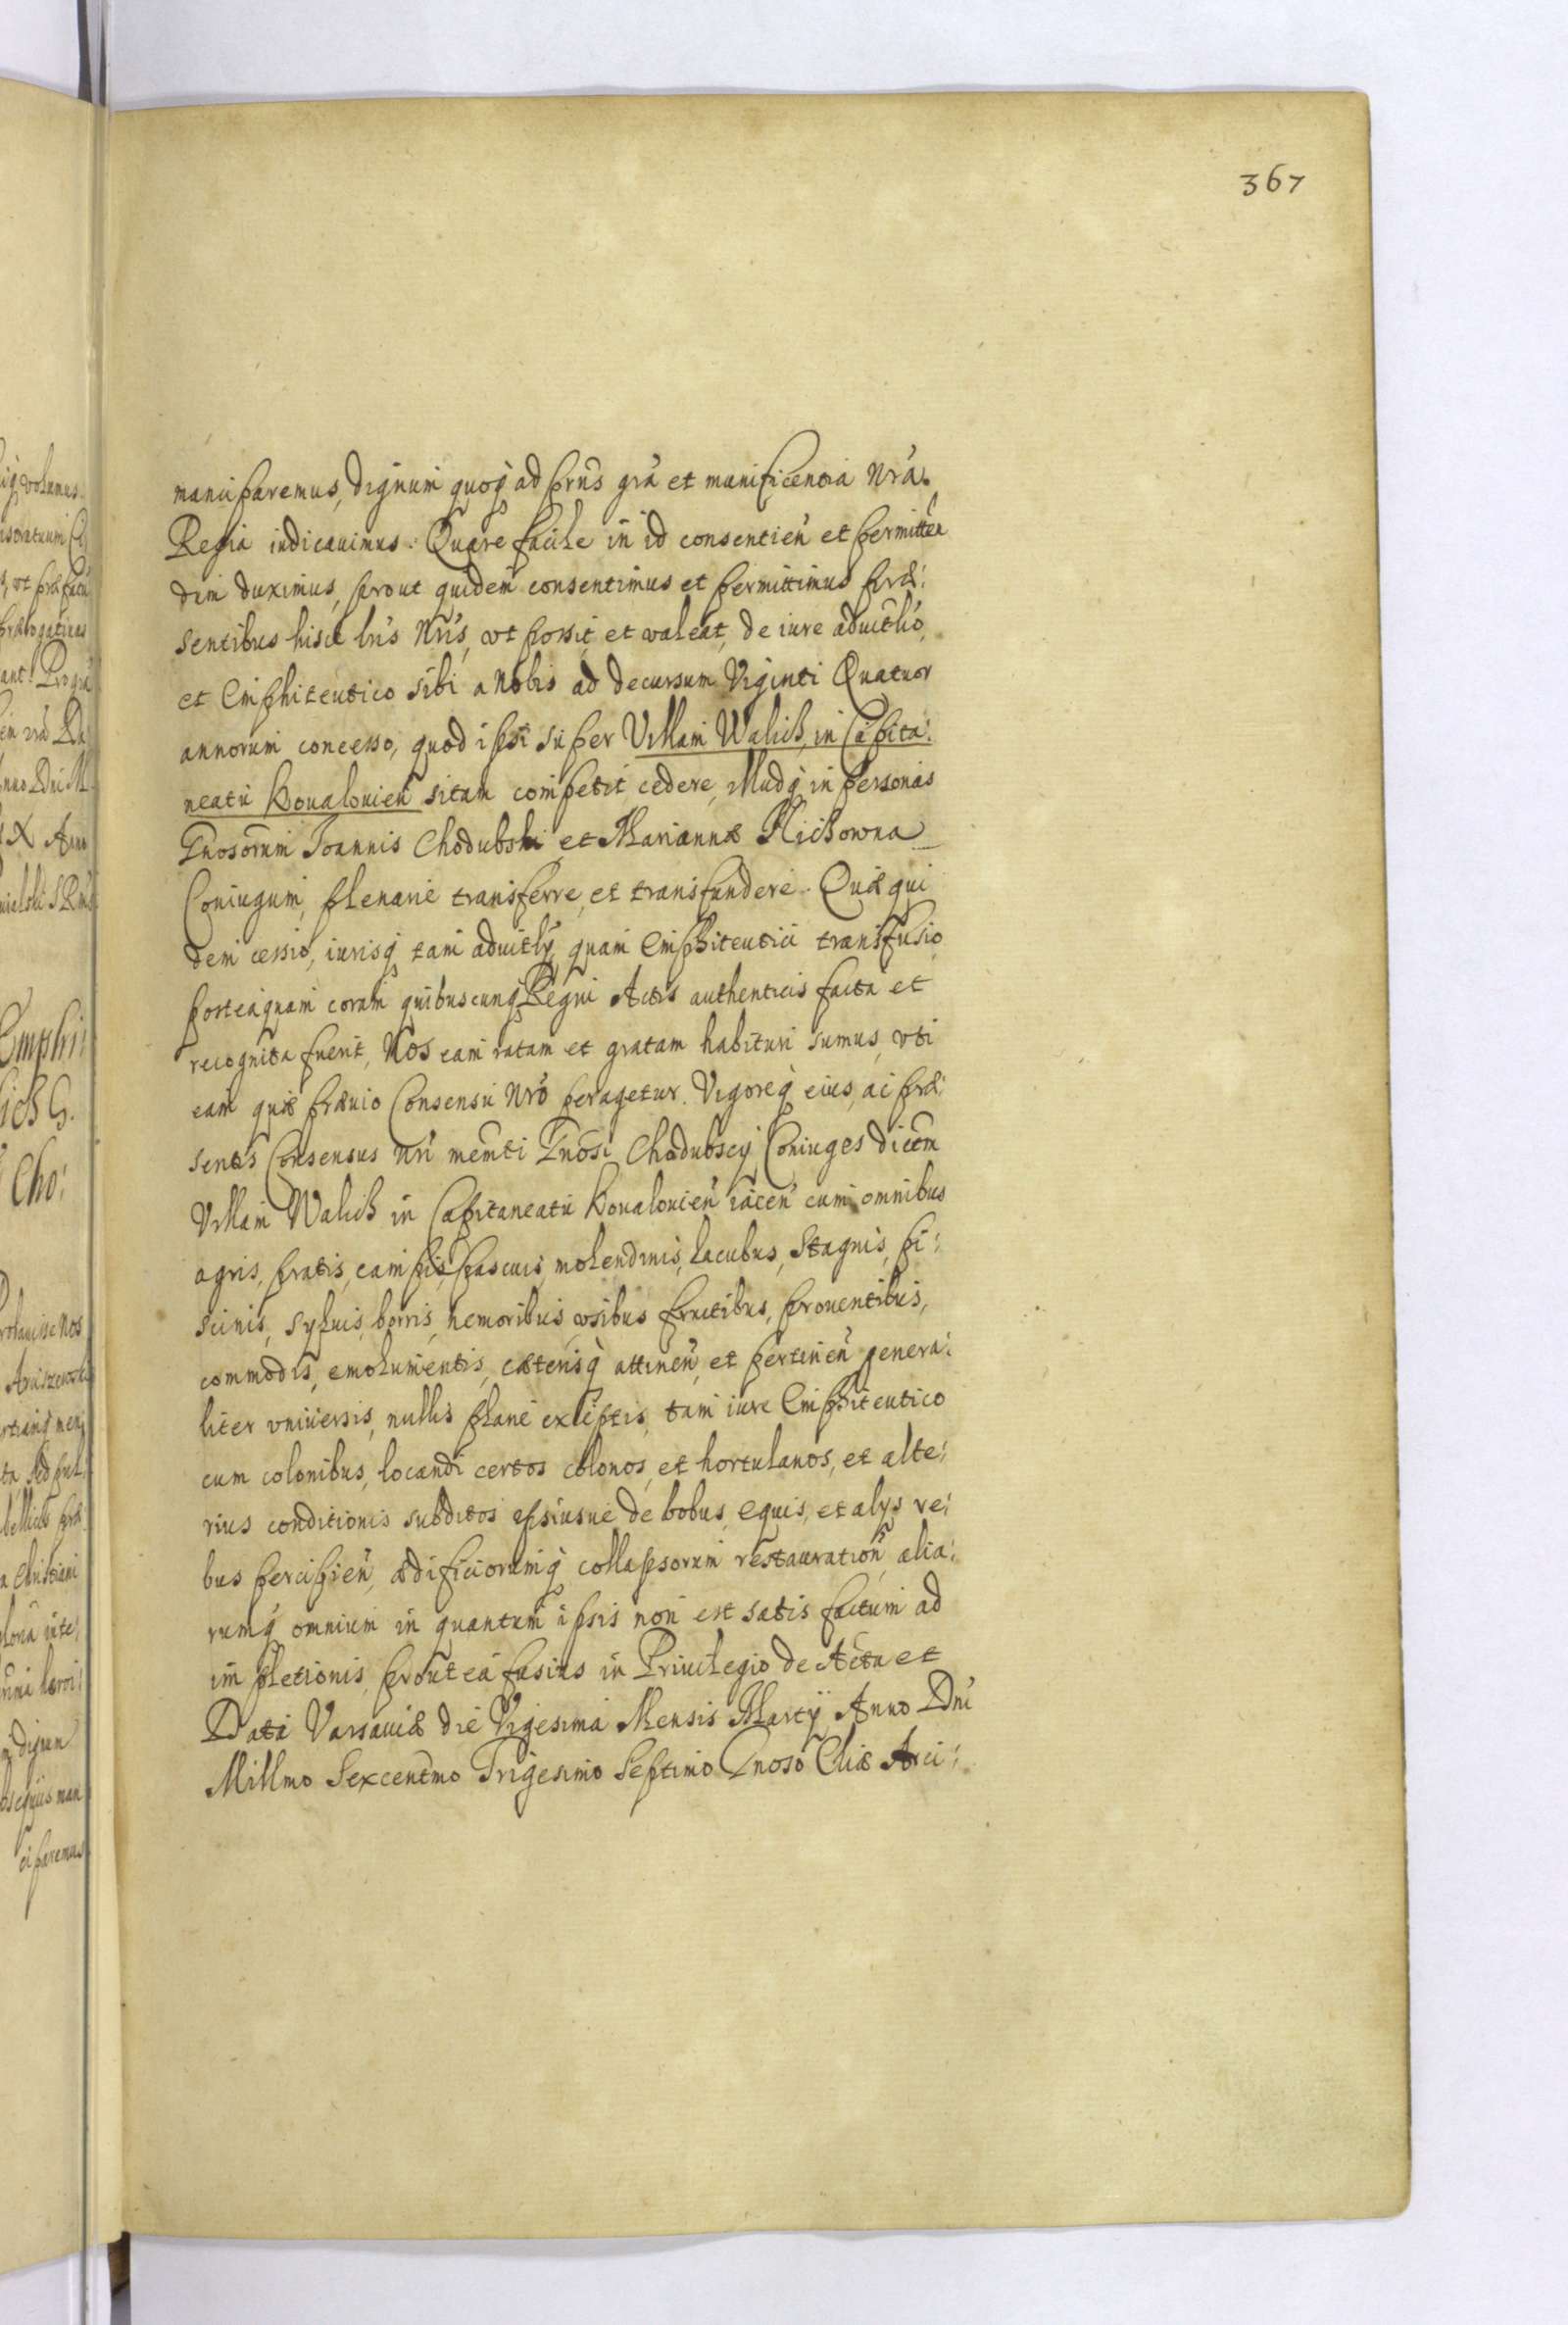 367
manciparemus, dignum quoq ad prns gra et munificentia Nra.
Regia iudicauimus. Quare facile in id consentien et permitten
dum duximus, prout quidem consentimus et permittimus præ:
sentibus hisce lris Nris, vt possit et valeat, de iure aduitlio,
et Emphiteutico sibi a Nobis ad decursum Viginti Quatuor
annorum concesso, quod ipsi super Villam Walich, in Capita:
neatu Kovalouien sitam competit cedere, illudq in personas
Gnosorum Joannis Chodubski et Mariannæ Klichowna
Coniugum, plenarie transferre, et transfundere. Quæ qui
dem cessio, iurisq tam aduitlij, quam Emphiteutici transfusio
posteaquam coram quibuscunq Regni Actis authenticis facta et
recognita fuerit, Nos eam ratam et gratam habituri sumus, vti
eam quæ præuio Consensu Nro peragetur. Vigoreq eius, ac præ:
sentis Consensus Nri memti Gnosi Chodubscij Coniuges dictam
Villam Walich in Capitaneatu Kovalouien iacen cum omnibus
agris, pratis, campis, pascuis, molendinis, lacubus, Stagnis, pi:
scinis, syluis, borris, nemoribus, vsibus fructibus, prouentibus,
commodis, emolumentis, cæterisq attinen, et pertinen genera:
liter vniuersis, nullis plane exceptis, tam iure Emphiteutico
cum colonibus, locandi certos colonos, et hortulanos, et alte:
rius conditionis subditos ipsiusue de bobus, equis, et alys re:
bus percipien, ædificiorumq collapsorum restauration, alia:
rumq omnium in quantum ipsis non est satis factum ad
impletionis, prout ea fusius in Priuilegio de Acta et
Data Varsauiæ die Vigesima Mensis Martij Anno Dni
Millmo Sexcentmo Trigesimo Septimo Gnoso Eliæ Arci: